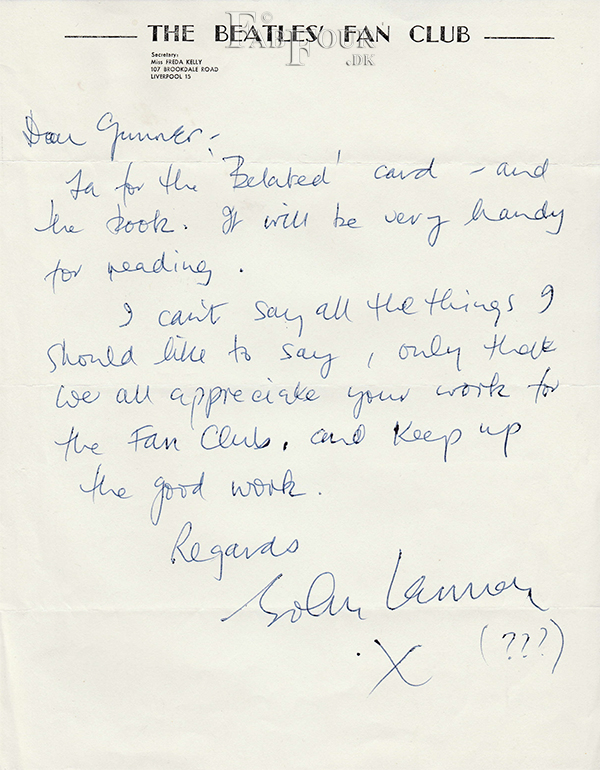 THE BEATLES' FAN CLUB
FAB FOUR
.DK
Secretary:
Miss FREDA KELLY
107 BROOKDALE ROAD
LIVERPOOL 15
Dear Gunner -
Ta for the 'Belated' card - and
the book. It will be very handy
for reading.
I can't say all the things I
should like to say, only that
we all appreciate your work for
the Fan Club, and keep up
the good work.
Regards
John Lennon
X (???)